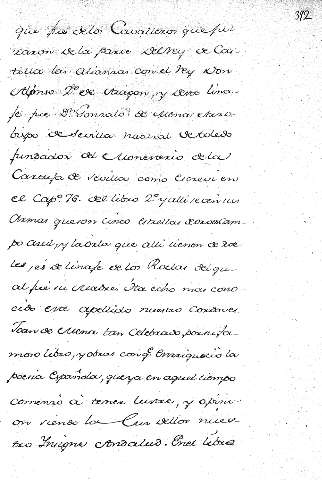 392
que fue de los Cavalleros que fir
maron de la parte del Rey de Cas
tilla las alianzas con el Rey Don
Alfonso 2º de Aragon, y deste lina
je fue Dn Gonzalo de Mena Arzo
bispo de Sevilla natural de Toledo
fundador del Monesterio de la
Cartuja de Sevilla como escreví en
el Capº 76. del libro 2º y alli se ven sus
Armas que son cinco estrellas de oro
po azul, y la orla que alli tienen de
les, es de linaje de los Roelas del qu
al fue su Madre. Ha echo mas cono
cido este apellido nuestro Cordoves
Juan de Mena tan celebrado, por su fa
moso libro, y obras con q. enriqueció la
poesia Española, que ya en aquel tiempo
comenzó á tener lustre, y opini
on siendo la Luz dellos nues
tro Insigne Andaluz. En el libro